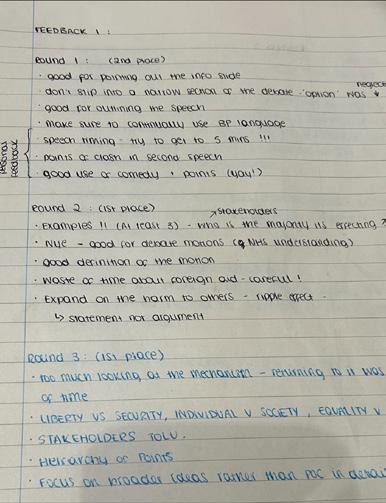 FEEDBACK 1 :
Round 1 : (2nd place)
· good for pointing out the info slide
neglect
· don't slip into a narrow section of the debate - 'option' was
· good for outlining the speech
· make sure to continually use BP language
personal feedback
speech timing - try to get to 5 mins !!!
· points of clash in second speech
· good use of comedy + points (yay!)
Round 2 : (1st place)
→ stakeholders
· Examples !! (At least 3) - who is the majority its effecting ?
· NYE - good for debate motions ( NHS understanding)
· good definition of the motion
· Waste of time about foreign aid - careful !
· Expand on the harm to others - ripple effect -
↳ statement not argument
Round 3 : (1st place)
· too much looking at the mechanism - returning to it was
of time
· LIBERTY VS SECURITY, INDIVIDUAL V SOCIETY, EQUALITY V
· STAKEHOLDERS
· Heirarchy of Points
· Focus on broader ideas rather than POC in detail